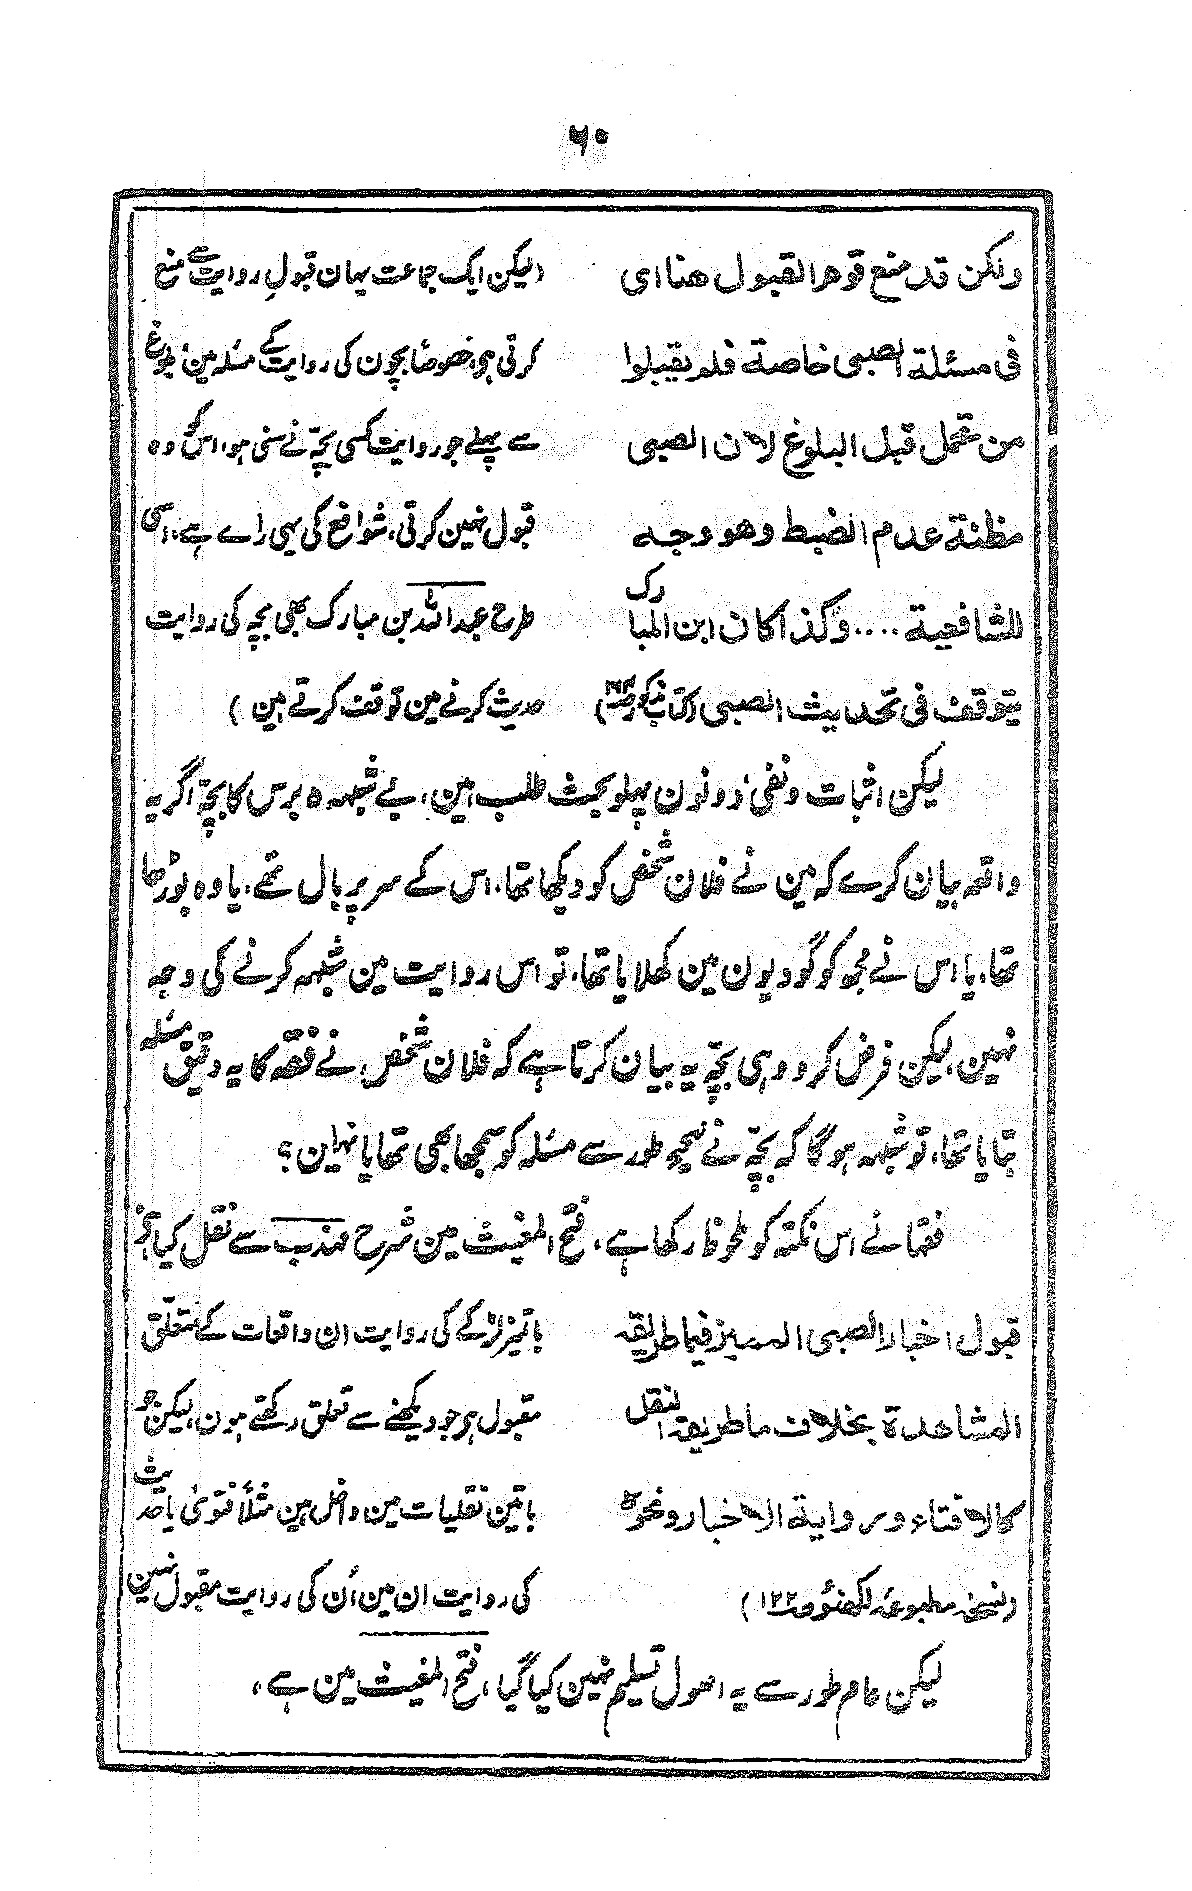 ۶۰
ولکن قد منع قوم القبول هنا ای
فی مسئلة الصبی خاصة فلم یقبلوا
من تحمل قبل البلوغ لان الصبی
مظنة عدم الضبط وهو وجه
للشافعیة .... وکذا کان ابن المبارک
یتوقف فی تحدیث الصبی
(لیکن ایک جماعت یہان قبول روایت سے منع
کرتی ہی، خصوصاً بچون کی روایت کے مسئلہ مین، بلوغ
سے پہلے جو روایت کسی بچّہ نے سنی ہو، اس کو وہ
قبول نہین کرتی، شوافع کی یہی راے ہے، اسی
طرح عبداللہ بن مبارک بھی بچہ کی روایت
حدیث کرنے مین توقف کرتے ہین)
لیکن اثبات و نفی دونون پہلو بحث طلب ہین، بے شبہہ ۵ برس کا بچّہ اگر یہ
واقعہ بیان کرے کہ مین نے فلان شخص کو دیکھا تھا، اس کے سر پر بال تھے، یا وہ بوڑھا
تھا، یا اس نے مجھ کو گودیون مین کھلایا تھا، تو اس روایت مین شبہہ کرنے کی وجہ
نہین، لیکن فرض کرو وہی بچّہ یہ بیان کرتا ہے کہ فلان شخص نے فقہ کا یہ دقیق مسئلہ
بتایا تھا، تو شبہہ ہوگا کہ بچّہ نے صحیح طور سے مسئلہ کو سمجھا بھی تھا یا نہین؟
فقہا نے اس نکتہ کو ملحوظ رکھا ہے، فتح المغیث مین شرح مہذب سے نقل کیا ہے
قبول اخبار الصبی الممیز فیما طریقه
المشاهدة بخلاف ما طریقه النقل
کالافتاء وروایة الاخبار ونحوه
(نسخہ مطبوعہ لکھنؤ ص ۱۲۲)
باتمیز لڑکے کی روایت ان واقعات کے متعلّق
مقبول ہر جو دیکھنے سے تعلق رکھتے ہون، لیکن جو
باتین نقلیات مین داخل ہین مثلاً فتویٰ یا حدیث
کی روایت ان مین اُن کی روایت مقبول نہین
لیکن عام طور سے یہ اصول تسلیم نہین کیا گیا، فتح المغیث مین ہے،